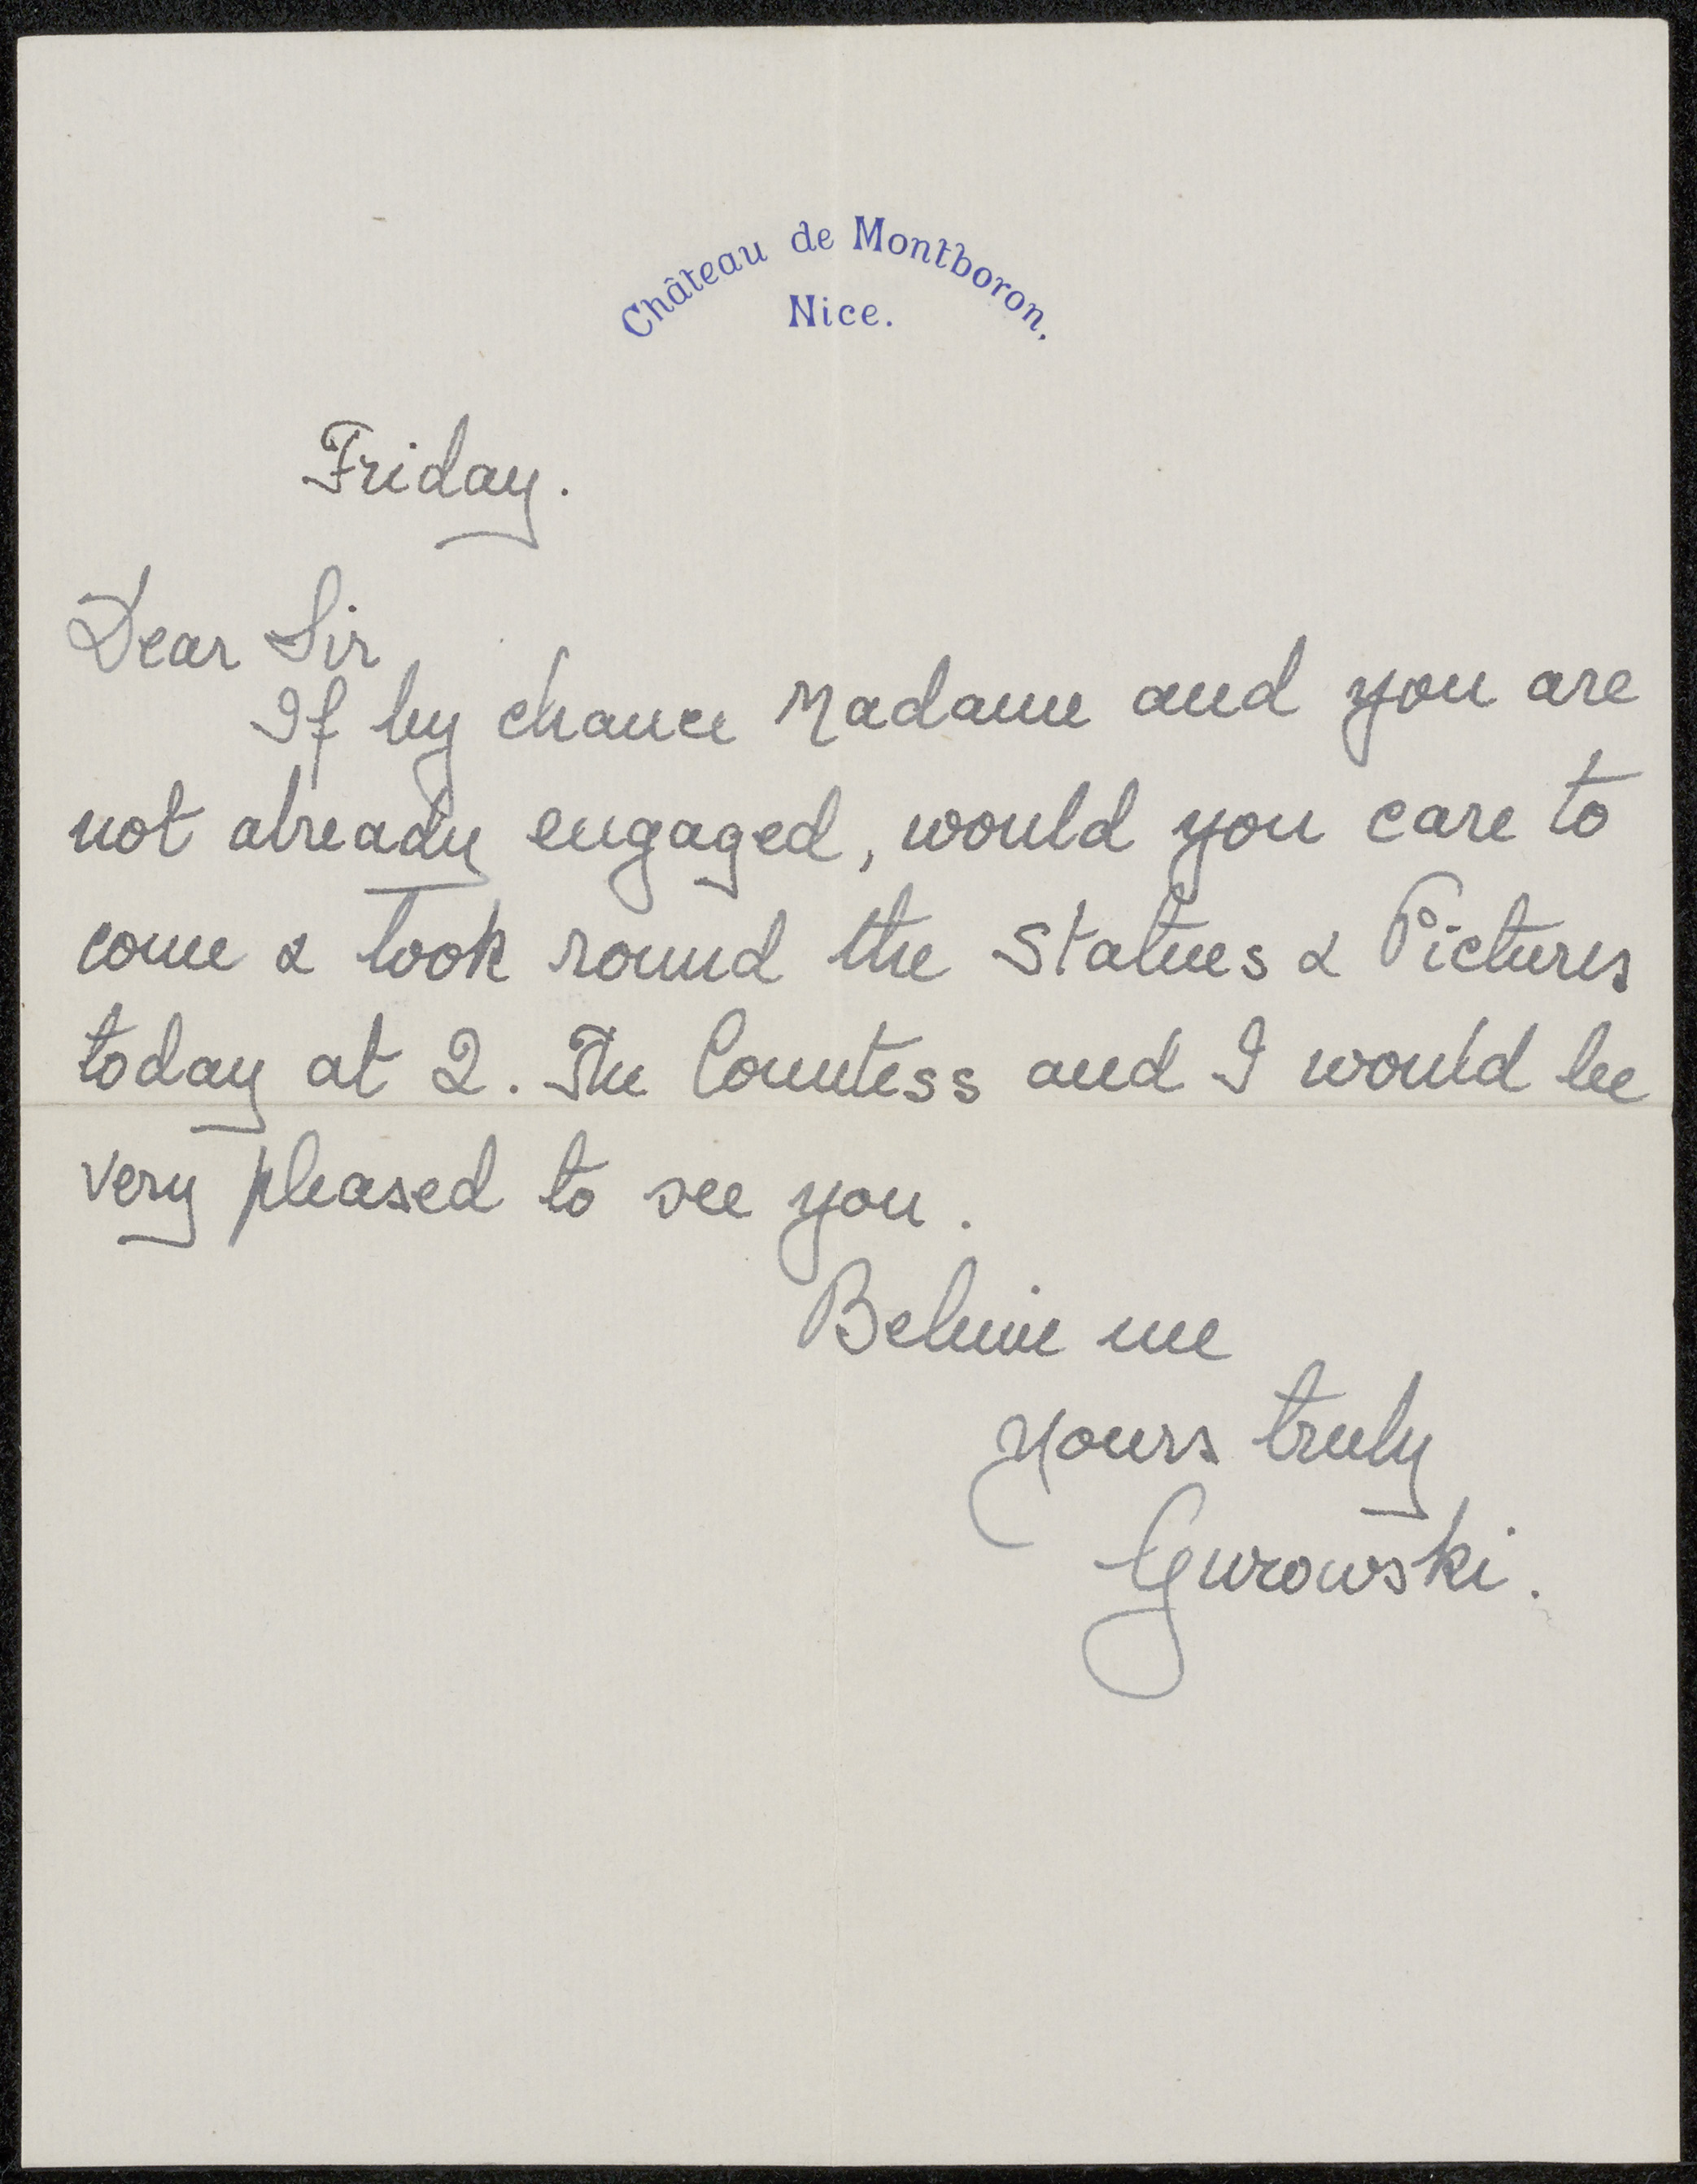 Château de Montboron.
Nice.
Friday.
Dear Sir
If by chance Madame and you are
not already engaged, would you care to
come & look round the Statues & Pictures
today at 2. The Countess and I would be
very pleased to see you.
Believe me
yours truly
Gurowski.